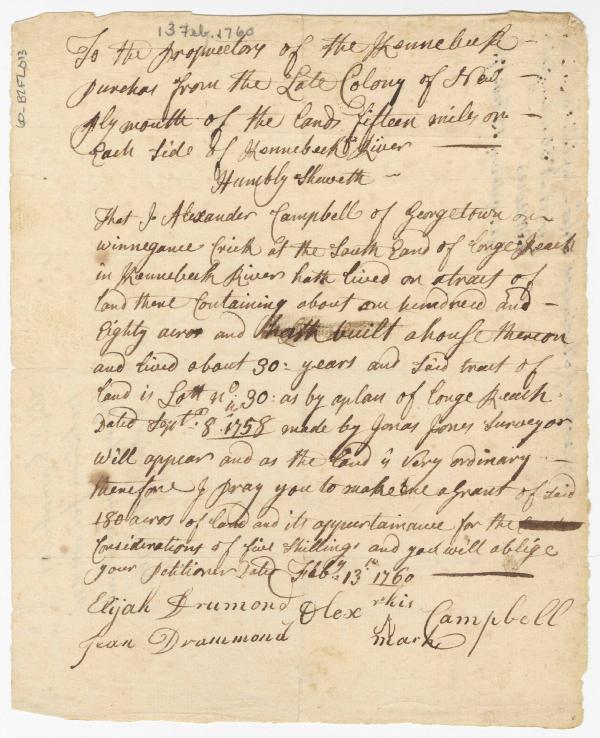 13 Feb. 1760
60-B2F2D13
To the Proprietors of the Kennebeck
purchas from the Late Colony of New
plymouth of the lands fifteen miles on
Each side of Kennebeck River
Humbly Sheweth
That I Alexander Campbell of Georgetown on
winnegance Crick at the South End of Longe Reach
in Kennebeck River hath lived on a tract of
land there Containing about one hundred and
Eighty acros and hath built a house thereon
and lived about 30 years and said tract of
land is Lott No 30: as by a plan of Longe Reach
Dated Septr. 8 1758 made by Jonas Jones Surveyor
will appear and as the land is very ordinary
therefore I pray you to make me a Grant of said
180 acros of land and its appurtainance for the
Considerations of five Shillings and you will oblige
your Petitioner Dated Feby 13th 1760
Elijah Drumond Alex his Campbell
Jean Drummond mark